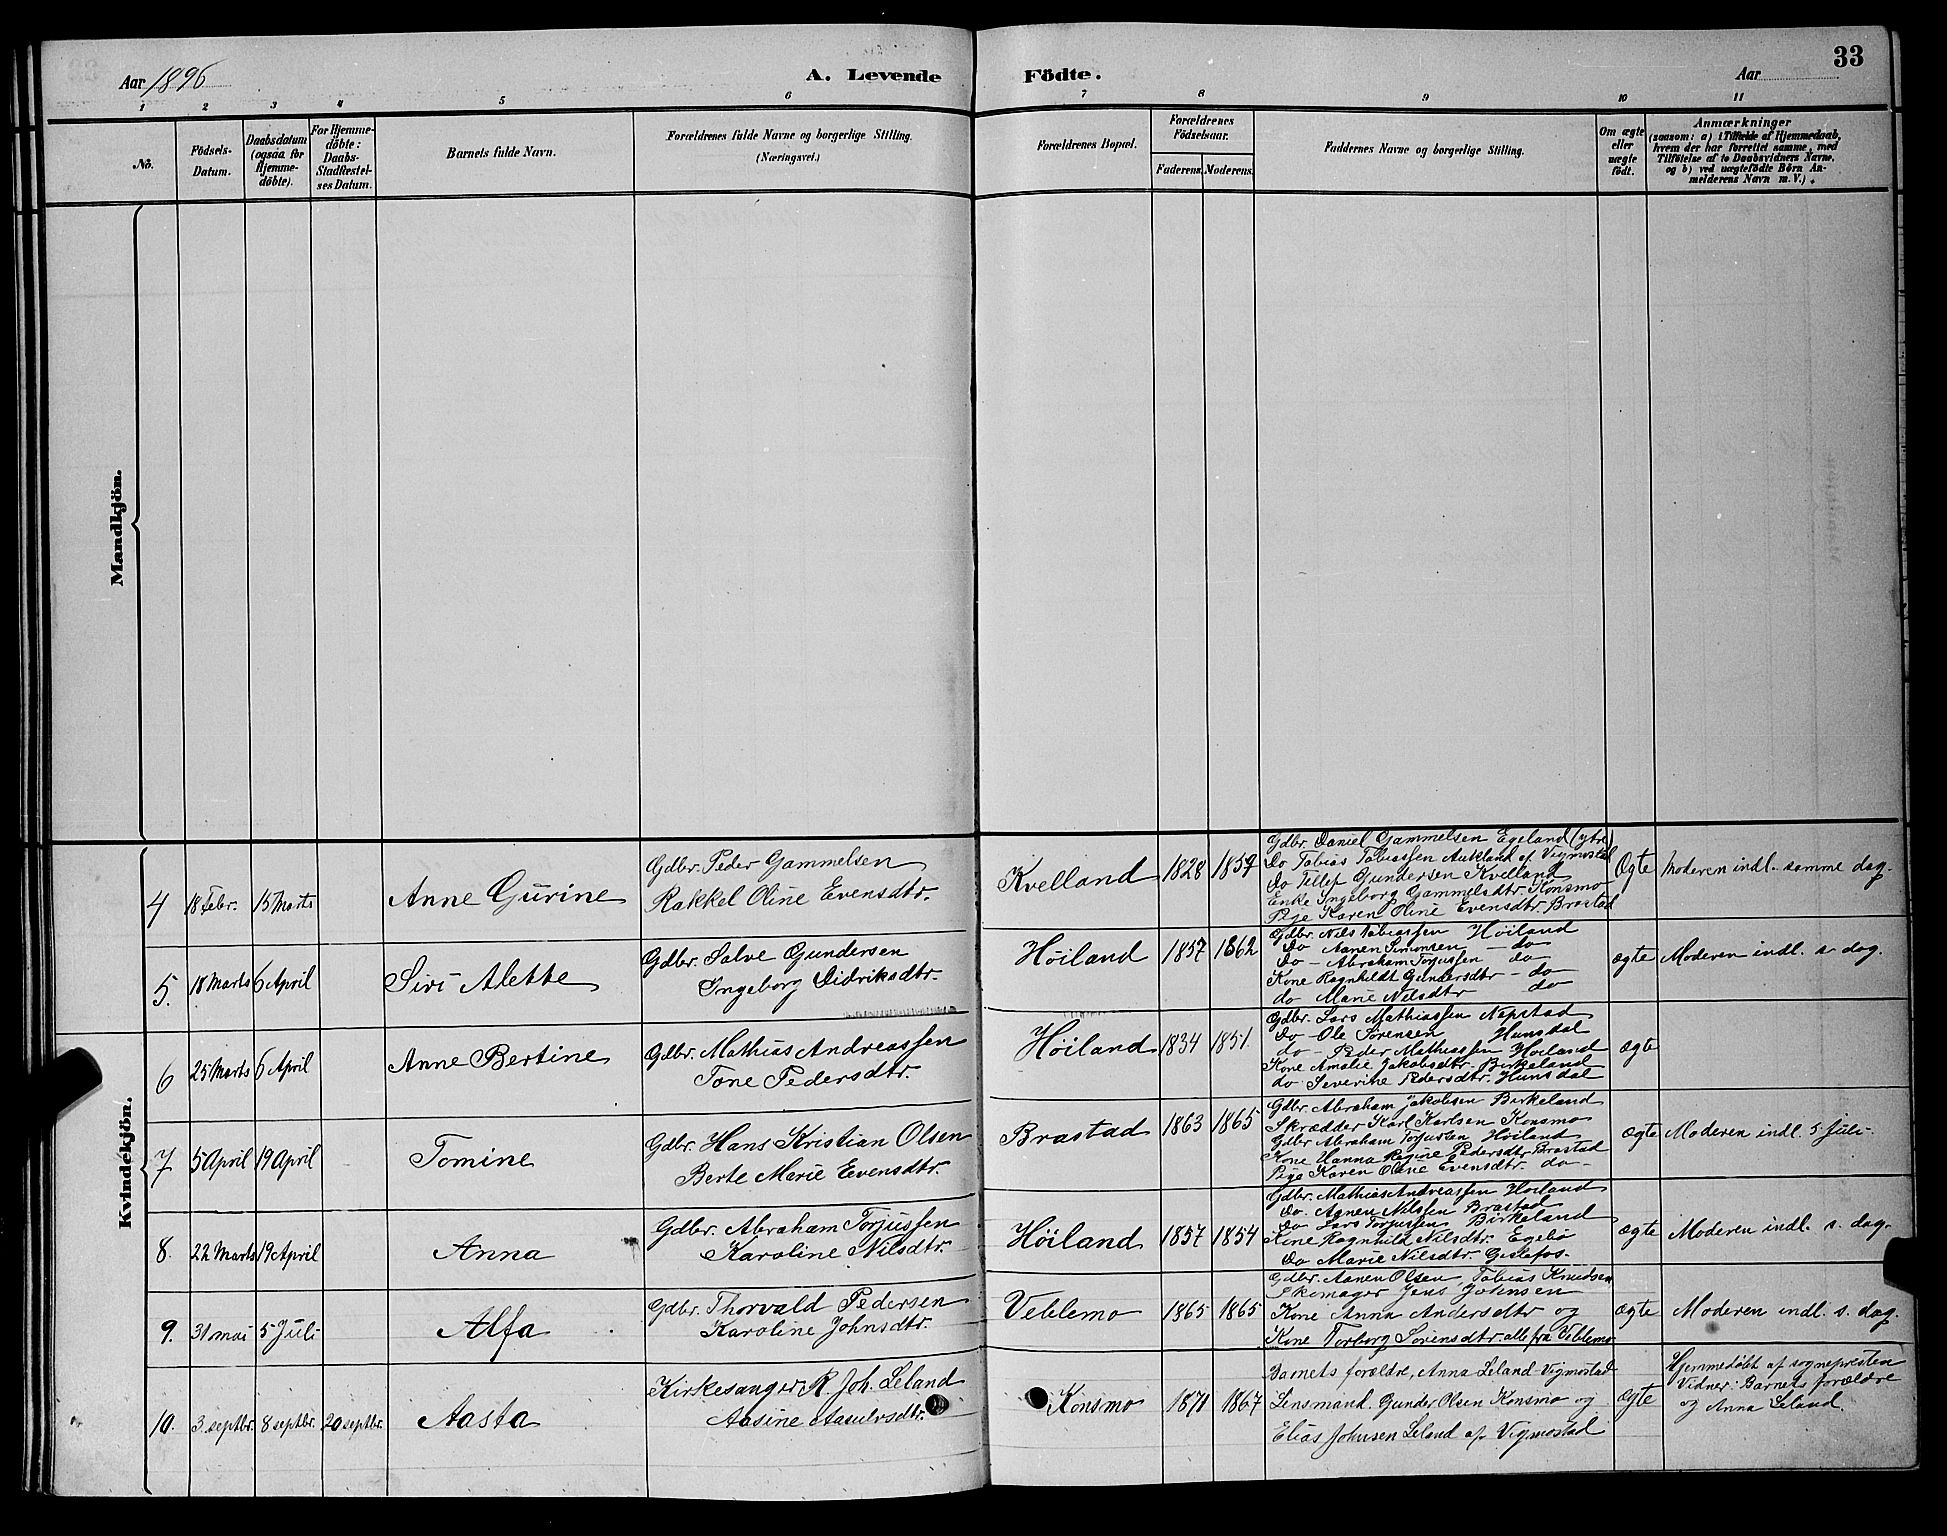 Aar 1896
A. Levende Födte.
Aar
33
1 2 3 4 5 6 7 8 9 10 11
No.
Födsels-
Datum.
Daabsdatum
(ogsaa for
Hjemme-
döbte).
For Hjemme-
döbte:
Daabs-
Stadfæstel-
ses Datum.
Barnets fulde Navn.
Forældrenes fulde Navne og borgerlige Stilling.
(Næringsvei.)
Forældrenes Bopæl.
Forældrenes
Födselsaar.
Faderens. Moderens.
Faddernes Navne og borgerlige Stilling.
Om ægte
eller
uægte
födt.
Anmærkninger
(saasom: a) i Tilfælde af Hjemmedaab,
hvem der har forrettet samme, med
Tilföielse af to Daabsvidners Navne,
og b) ved uægtefödte Börn An-
melderens Navn m. V.).
Mandkjön.
Kvindekjön.
4 18 Febr. 15 Marts Anne Gurine
Gdbr. Peder Gammelsen
Rakkel Oline Evensdtr.
Kvelland 1828 1857
Gdbr Daniel Gammelsen Egeland (ytre)
Do Tobias Tobiassen Aukland af Vigmostad
Do Tellef Gundersen Kvelland
Enke Ingeborg Gammelsdtr. Konsmo
Pige Karen Oline Evensdtr. Brastad
Ogte Moderen indl. samme dag.
5. 18 Marts 6 April Siri Alette
Gdbr. Salve Gundersen
Ingeborg Didriksdtr.
Höiland 1857 1862
Gdbr. Nils Tobiassen Höiland
Do Aanen Simonsen - do
Do - Abraham Torjussen do
Kone Ragnhildt Gundersdtr - do
do Marie Nilsdtr do
ægte Moderen indl. s. dag.
6 25 Marts 6 April Anne Bertine
Gdbr. Mathias Andreassen
Tone Pedersdtr.
Höiland 1834 1851.
Gdbr. Lars Mathiassen Nepstad
Do - Ole Sörensen Hunsdal
do - Peder Mathiassen Höiland
Kone Amalie Jakobsdtr. Birkeland
do Severine Pedersdtr. Hunsdal
ægte
7 5 April 19 April Tomine
Gdbr. Hans Kristian Olsen
Berte Marie Evensdtr.
Brastad 1863 1865
Gdbr. Abraham Jakobsen Birkeland
Skrædder Karl Karlsen Konsmo
Gdbr Abraham Torjussen Höiland
Kone Hanna Regine Pedersdtr Brastad
Pige Karen Oline Evensdtr. do -
ægte Moderen indl. 5 Juli.
8. 22 Marts 19 April Anna
Gdbr. Abraham Torjussen
Karoline Nilsdtr.
Höiland 1857 1854
Gdbr. Mathias Andreassen Höiland
Do. Aanen Nilssen Brastad
Do Lars Torjussen Birkeland
Kone Ragnhild Nilsdtr. Egebö
Do Marie Nilsdtr.
ægte Moderen indl. s. dag.
9. 31 mai 5 Juli Alfa
Gdbr. Thorvald Pedersen
Karoline Johnsdtr.
Veblemo 1865 1865
Gdbr. Aanen Olsen, Tobias Knudsen
Skomager Jens Johnsen
Kone Anna Andersdtr og
Kone Torborg Sörensdtr. alle fra Veblemo
ægte Moderen indl. s. dag.
10. 3 septbr. 8 septbr. 20 septbr. Aasta
Kirkesanger R. Joh. Leland
Aasine Aasulvsdtr.
Konsmo 1871 1867
Barnets forældre, Anna Leland-Vigmostad
Lensmand. Gunder Olsen Konsmo og
Elias Johnsen Leland af Vigmostad
ægte Hjemmedöbt af sognepresten
Vidner: Barnets forældre
og Anna Leland.